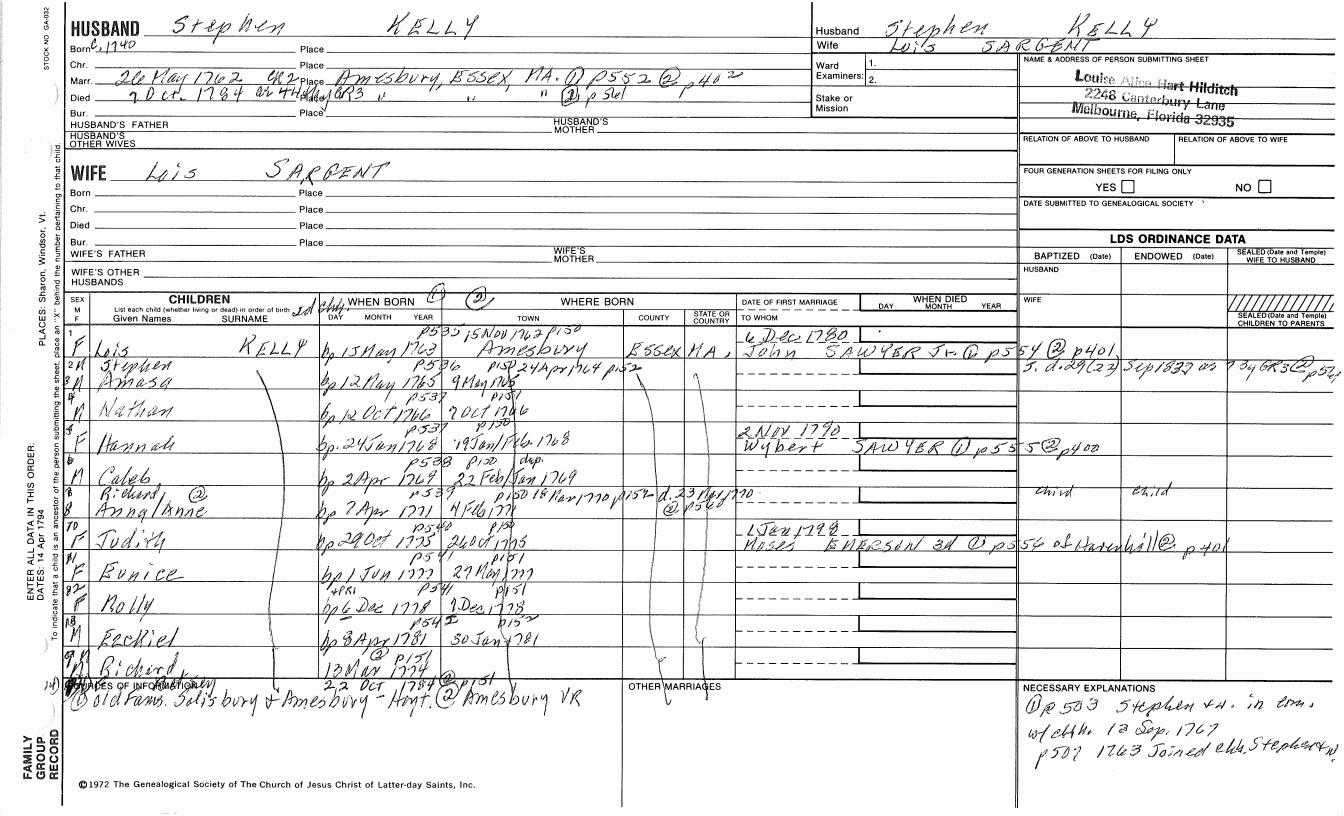 STOCK NO GA-032
HUSBAND Stephen KELLY
Born c. 1740 Place
Chr. Place
Marr. 26 May 1762 CR2 Place Amesbury, Essex, MA. ① p552 ② p402
Died 7 Oct. 1784 ae 44 Place GR3 " " " ② p561
Bur. Place
HUSBAND'S FATHER HUSBAND'S MOTHER
HUSBAND'S OTHER WIVES
WIFE Lois SARGENT
Born Place
Chr. Place
Died Place
Bur. Place
WIFE'S FATHER WIFE'S MOTHER
WIFE'S OTHER HUSBANDS
Husband Stephen KELLY
Wife Lois SARGENT
Ward Examiners: 1.
2.
Stake or Mission
NAME & ADDRESS OF PERSON SUBMITTING SHEET
Louise Alice Hart Hilditch
2248 Canterbury Lane
Melbourne, Florida 32935
RELATION OF ABOVE TO HUSBAND RELATION OF ABOVE TO WIFE
FOUR GENERATION SHEETS FOR FILING ONLY
YES NO
DATE SUBMITTED TO GENEALOGICAL SOCIETY
LDS ORDINANCE DATA
BAPTIZED (Date) ENDOWED (Date) SEALED (Date and Temple) WIFE TO HUSBAND
HUSBAND
WIFE
SEALED (Date and Temple) CHILDREN TO PARENTS
SEX M F
CHILDREN
List each child (whether living or dead) in order of birth
Given Names SURNAME
2d chh. WHEN BORN ① ② WHERE BORN
DAY MONTH YEAR TOWN COUNTY STATE OR COUNTRY
DATE OF FIRST MARRIAGE
TO WHOM
WHEN DIED
DAY MONTH YEAR
1 p535 15 Nov 1762 p150 6 Dec 1780
F Lois KELLY bp 15 May 1763 Amesbury Essex MA, John SAWYER Jr. ① p554 ② p401
2 M Stephen p536 p150 24 Apr 1764 p152 Sep 1837 GR3 ②
3 M Amasa bp 12 May 1765 9 May 1765
4 p537 p151
M Nathan bp 12 Oct 1766 7 Oct 1766
5 p537 p150 2 Nov 1790
F Hannah bp. 24 Jan 1768 19 Jan/Feb. 1768 Wybert SAWYER ① p555 ② p400
6 p538 p150 dup.
M Caleb bp 2 Apr 1769 22 Feb/Jan 1769
Richard ② p539 p150 18 Mar 1770 p152 d. 23 Mar 1770 child child
8 Anna/Anne bp 7 Apr 1771 4 Feb 1771 ② p560
10 p540 p150 1 Jan 1798
F Judith bp 29 Oct 1775 26 Oct 1775 Moses EMERSON 3d ① p556 of Haverhill ② p401
11 p541 p151
F Eunice bp 1 Jun 1777 27 May 1777
12 +PR1 p541 p151
F Molly bp 6 Dec 1778 1 Dec 1778
13 p542 p152
M Ezekiel bp 8 Apr 1781 30 Jan 1781
9 M Richard 13 Mar 1774 ② p151
14) 22 Oct 1784 ② p151
SOURCES OF INFORMATION
① Old Fams. Salisbury & Amesbury - Hoyt. ② Amesbury VR
OTHER MARRIAGES
NECESSARY EXPLANATIONS
① p 503 Stephen + w. in com.
w/ chh. 12 Sep. 1767
p507 1763 Joined chh. Stephen + w.
©1972 The Genealogical Society of The Church of Jesus Christ of Latter-day Saints, Inc.
FAMILY GROUP RECORD
ENTER ALL DATA IN THIS ORDER:
DATES: 14 Apr 1794 PLACES: Sharon, Windsor, Vt.
To indicate that a child is an ancestor of the person submitting the sheet, place an "X" behind the number pertaining to that child.